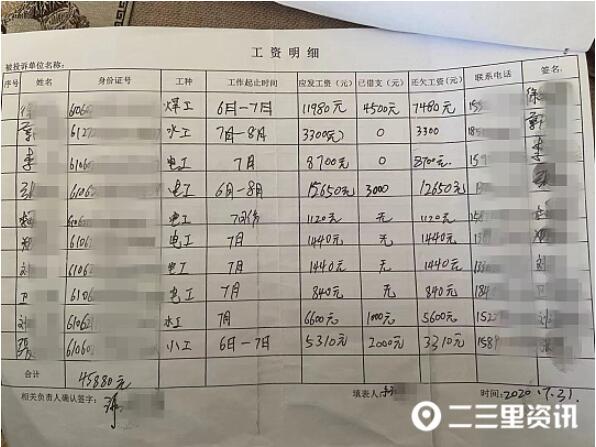 工资明细
被投诉单位名称：
序号 姓名 身份证号 工种 工作起止时间 应发工资（元） 已借支（元） 还欠工资（元） 联系电话 签名：
徐 6106 焊工 6月-7月 11980元 4500元 7480元 徐
6127 水工 7月-8月 3300元 0 3300 185
李 6106 电工 7月 8700元 0 8700元 159 李
6106 电工 6月-8月 15650元 3000 12650元
电工 1120元 无 1120元
6106 电工 7月 1440元 无 1440元
刘 6106 电工 7月 1440元 无 1440元 刘
卫 6106 电工 7月 840元 无 840元 184 卫
刘 6106 水工 7月 6600元 1000元 5600元 152
张 6106 小工 6月-7月 5310元 2000元 3310元 1589 张
合计 45880元
相关负责人确认签字： 填表人： 时间：2020.7.31.
二三里资讯